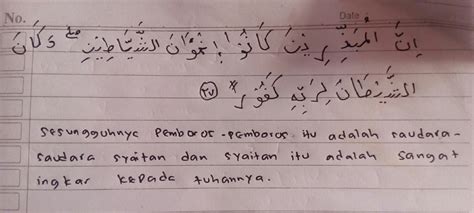 No. Date
اِنَّ الْمُبَذِّرِيْنَ كَانُوْا اِخْوَانَ الشَّيَاطِيْنِ ۖ وَكَانَ
الشَّيْطَانُ لِرَبِّهِ كَفُوْرًا (٢٧)
Sesungguhnya Pemboros-pemboros itu adalah saudara-
saudara syaitan dan syaitan itu adalah sangat
ingkar kepada tuhannya.